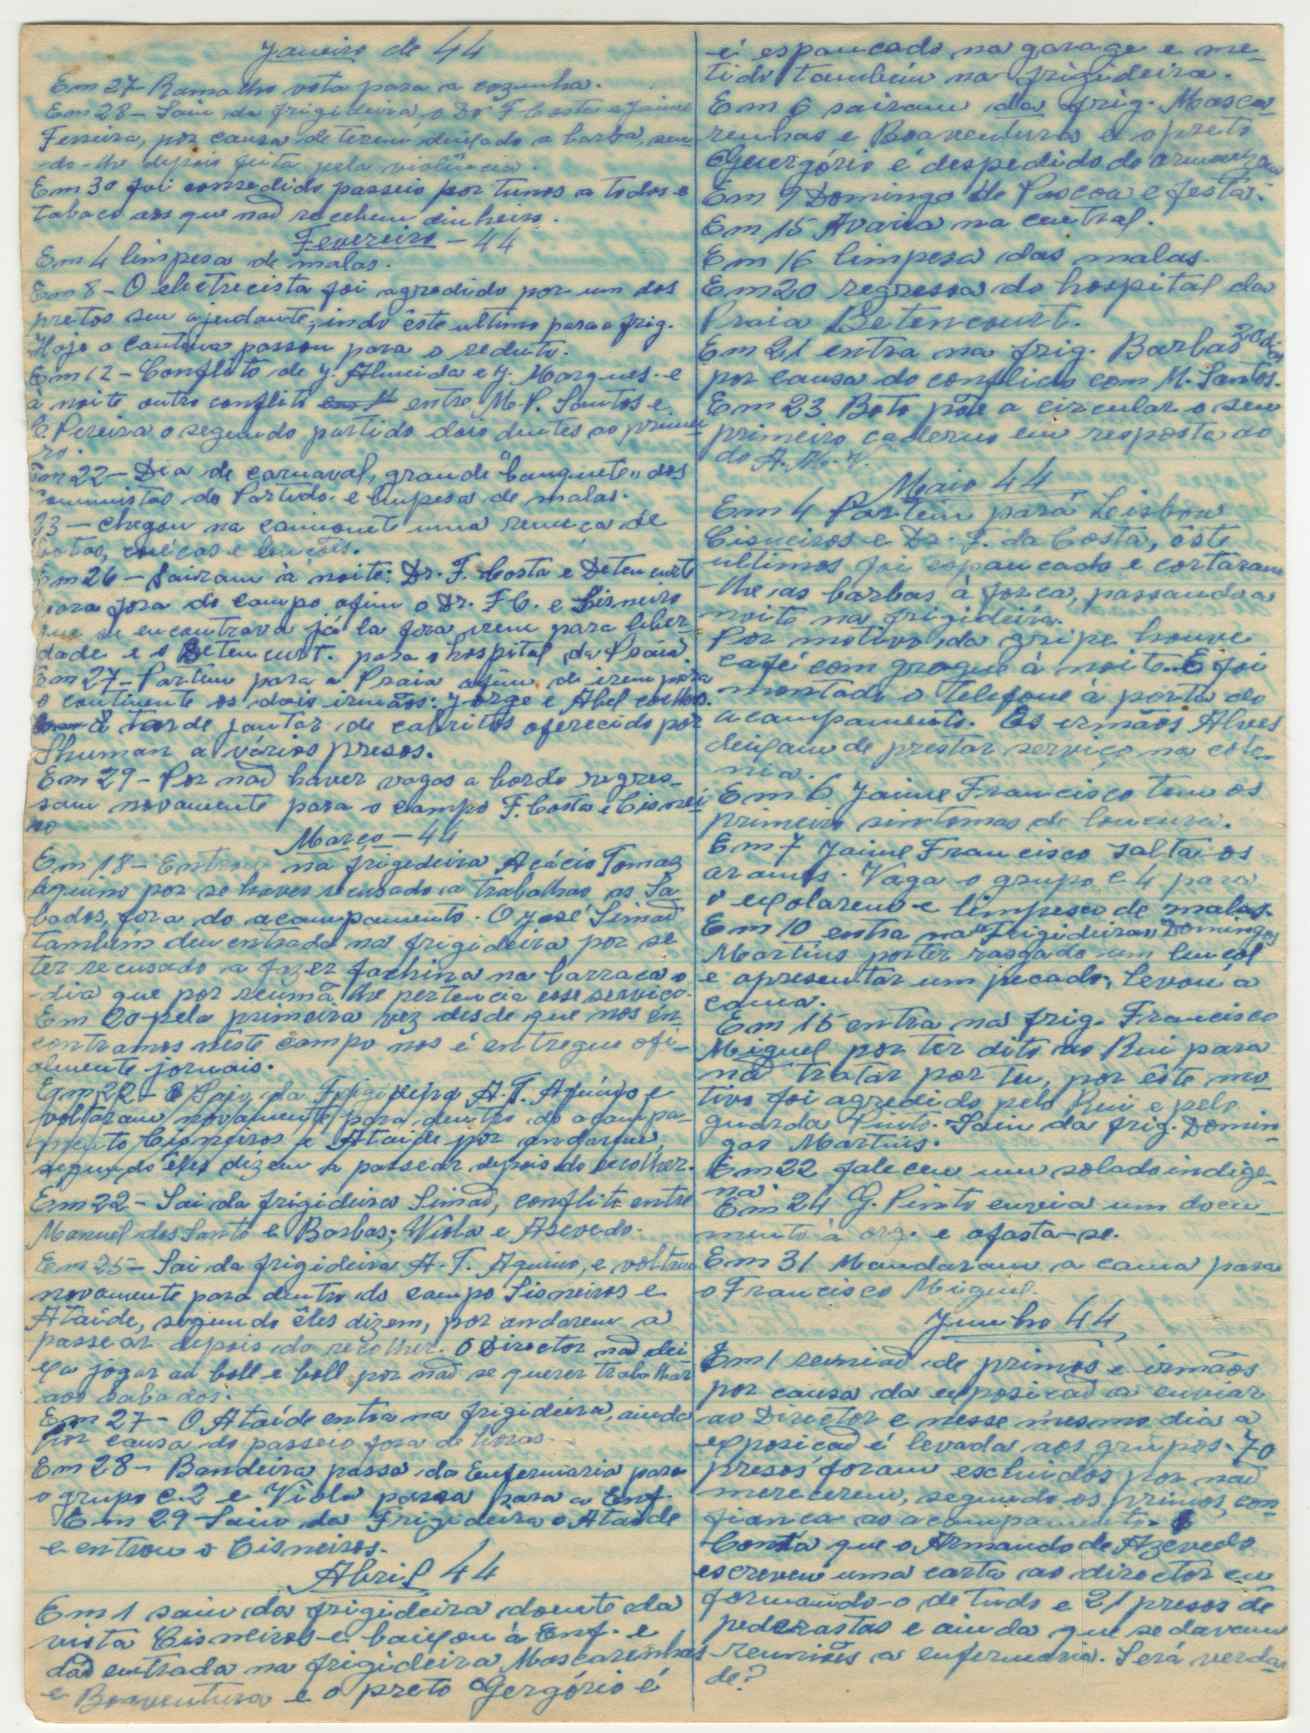 Janeiro de 44
Em 27 Ramalho volta para a cozinha.
Em 28 - Saiu da frigideira, o Dr F. Costa e Jaime
Ferreira, por causa de terem deixado a barba, sen-
do-lhe depois feita pela violência.
Em 30 foi consedido passeio por turnos a todos e
tabaco aos que naõ recebem dinheiro.
Fevereiro - 44
Em 4 limpesa de malas.
Em 8 - O electrecista foi agredido por um dos
pretos seu ajudante, indo êste ultimo para a frig.
Hoje a cantina passou para o reduto.
Em 12 - Conflito de J. Almeida e J. Marques - e
à noite outro conflito entre M. P. Santos e
Pereira o segundo partido dois dentes ao primei-
ro.
Em 22 - Dia de carnaval, grande "banquete" dos
Comunistas do Partido. e limpesa de malas.
23 - chegou na camionet uma remeça de
botas, cuécas e lençois.
Em 26 - Sairam à noite: Dr. F. Costa e Betencurte
para fora do campo afim o Dr. F. C. e Sisneiro
que se encontrava já la fora irem para liber
dade e o Betencurt. para o hospital da Praia.
Em 27 - Partem para a Praia afim de irem para
o continente os dois irmãos: Jorge e Abel coelho.
à tarde jantar de cabritos oferecido por
Shuman a vários presos.
Em 29 - Por naõ haver vagas a bordo regres-
sam novamente para o campo F. Costa e Cisnei
ro
Março - 44
Em 18 - Entrou na frigideira Acácio Tomaz
Aquino por se haver recusado a trabalhar as Sa
bados, fora do acampamento. O José Simaõ
também deu entrada na frigideira por se
ter recusado a fazer fachina na barraca o
dia que por reunmã lhe pertencia esse serviço.
Em 20 pela primeira vez desde que nos en
contramos nêste campo nos é entregue ofi-
cialmente jornais.
Em 22 - Saiu da Frigideira A. T. Aquino e
voltaram novamente para dentro do acampa-
mento Cisneiros e Ataíde por andarem
segundo êles dizem a passear depois do recolher.
Em 22 - Sai da frigideira Simaõ, conflito entre
Manuel dos Santo e Barbas; Viola e Azevedo.
Em 25 - Sai da frigideira A. T. Aquino, e voltam
novamente para dentro do campo Sisneiros e
Ataíde, segundo êles dizem, por andarem a
passear depois do recolher. O Director naõ dei-
xa jogar au boll e boll por naõ se querer trabalhar
aos sabados.
Em 27 - O Ataíde entra na frigideira, ainda
por causa do passeio fora de horas.
Em 28 - Bandeira passa da Enfermaria para
o grupo C.2 e Viola passa para a Enf.
Em 29 Saiu da Frigideira o Ataíde
e entrou o Cisneiros.
Abril 44
Em 1 saiu da frigideira doente da
vista Cisneiros e baixou à Enf. e
daõ entrada na frigideira Mascarenhas
e Boaventura e o preto Gergório é
é espancado na garage e me-
tido também na frigideira.
Em 6 sairam da frig. Masca
renhas e Boaventura e o preto
Guergório é despedido do armazem
Em 9 Domingo de Páscoa e festa.
Em 15 Avaria na central.
Em 16 limpesa das malas.
Em 20 regressa do hospital da
Praia Betencourt.
Em 21 entra na frig. Barbas 20 dias
por causa do conflicto com M. Santos.
Em 23 Boto põe a circular o seu
primeiro caderno em resposta ao
do A. M. V.
Maio 44
Em 4 Partem para Lisboa
Cisneiros e Dr. F. da Costa, êste
ultimos foi espancado e cortaram
-lhe as barbas à força, passando a
noite na frigideira.
Por motivo da gripe houve
café com grogue à noite. E foi
montado o Telefone à porta do
acampamento. Os irmãos Alves
deixam de prestar serviço na este-
nia.
Em 6 Jaime Francisco tem os
primeiro sintomas de loucura.
Em 7 Jaime Francisco salta os
arames. Vaga o grupo C 4 para
o expolarem e limpesa de malas.
Em 10 entra na "Frigideira" Domingos
Martins por ter rasgado um lençol
e apresentar um pecado, levou a
cama.
Em 15 entra na frig. Francisco
Miguel por ter dito ao Rui para
naõ tratar por tu, por êste mo
tivo foi agredido pelo Rui e pelo
guarda Pinto. Saiu da frig. Domin-
gos Martins.
Em 22 faleceu um soldado indige-
na.
Em 24 G. Pinto envia um docu-
mento à org. e afasta-se.
Em 31 Mandaram a cama para
o Francisco Miguel.
Junho 44
Em 1 reuniaõ de primos e irmãos
por causa da exposiçaõ a enviar
ao Director e nesse mesmo dia a
exposiçaõ é levada aos grupos. 70
presos foram escluidos por naõ
merecerem, segundo os primos, con
fiança ao acampamento.
Consta que o Armando de Azevedo
escreveu uma carta ao director in
formando-o de tudo e 21 presos de
pederastas e ainda que se davam
reuniões a enfermaria. Será verda
de?